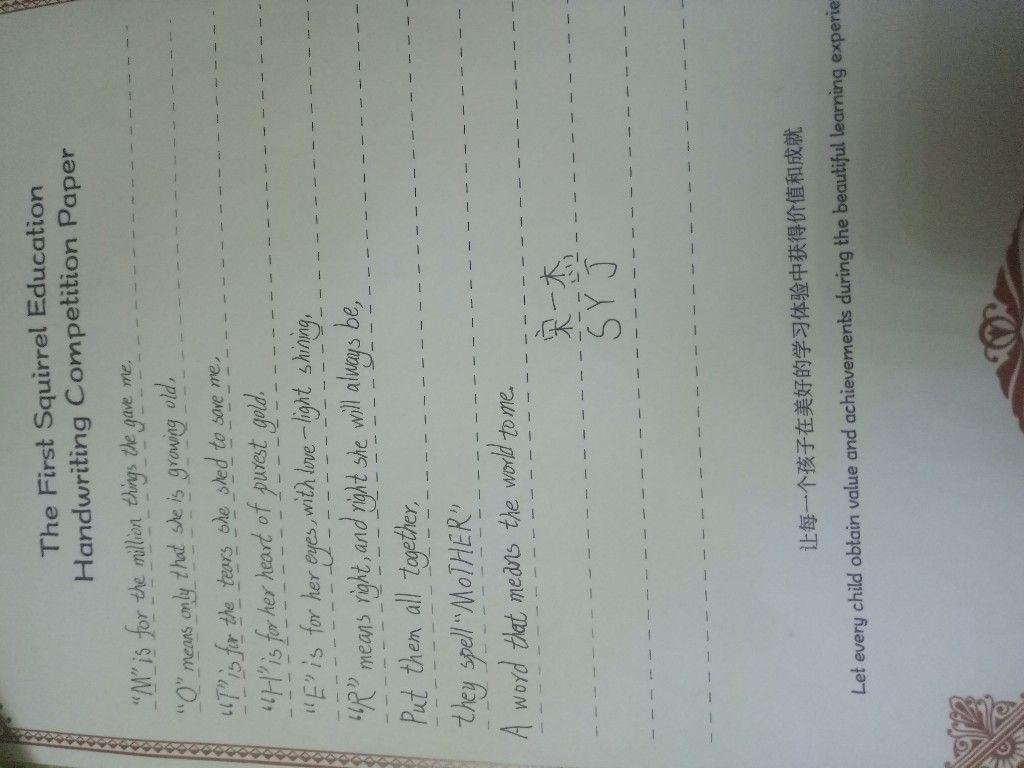 The First Squirrel Education
Handwriting Competition Paper
"M" is for the million things the gave me.
"O" means only that she is growing old,
"T" is for the tears she shed to save me,
"H" is for her heart of purest gold.
"E" is for her eyes, with love-light shining,
"R" means right, and right she will always be,
Put them all together,
they spell "MOTHER"
A word that means the world to me.
宋一杰
SYJ
让每一个孩子在美好的学习体验中获得价值和成就
Let every child obtain value and achievements during the beautiful learning experie